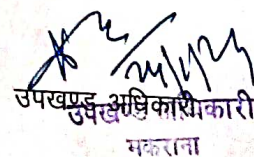 उपखण्ड अधिकारी
उपखण्ड अधिकारी
मकराना